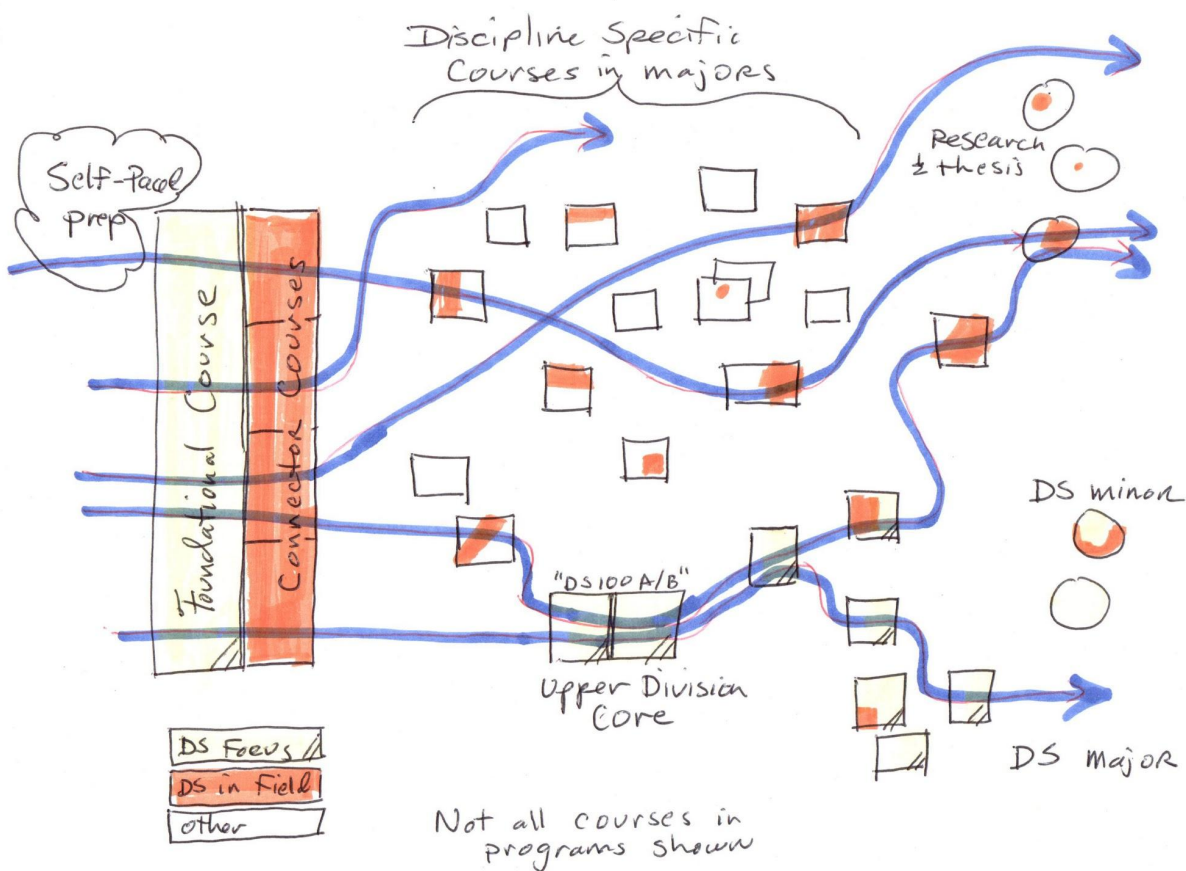 Discipline Specific
Courses in majors
Self-Paced
prep
Research
& thesis
Foundational Course
Connector Courses
DS minor
"DS100 A/B"
Upper Division
Core
DS major
DS Focus
DS in Field
other
Not all courses in
programs shown